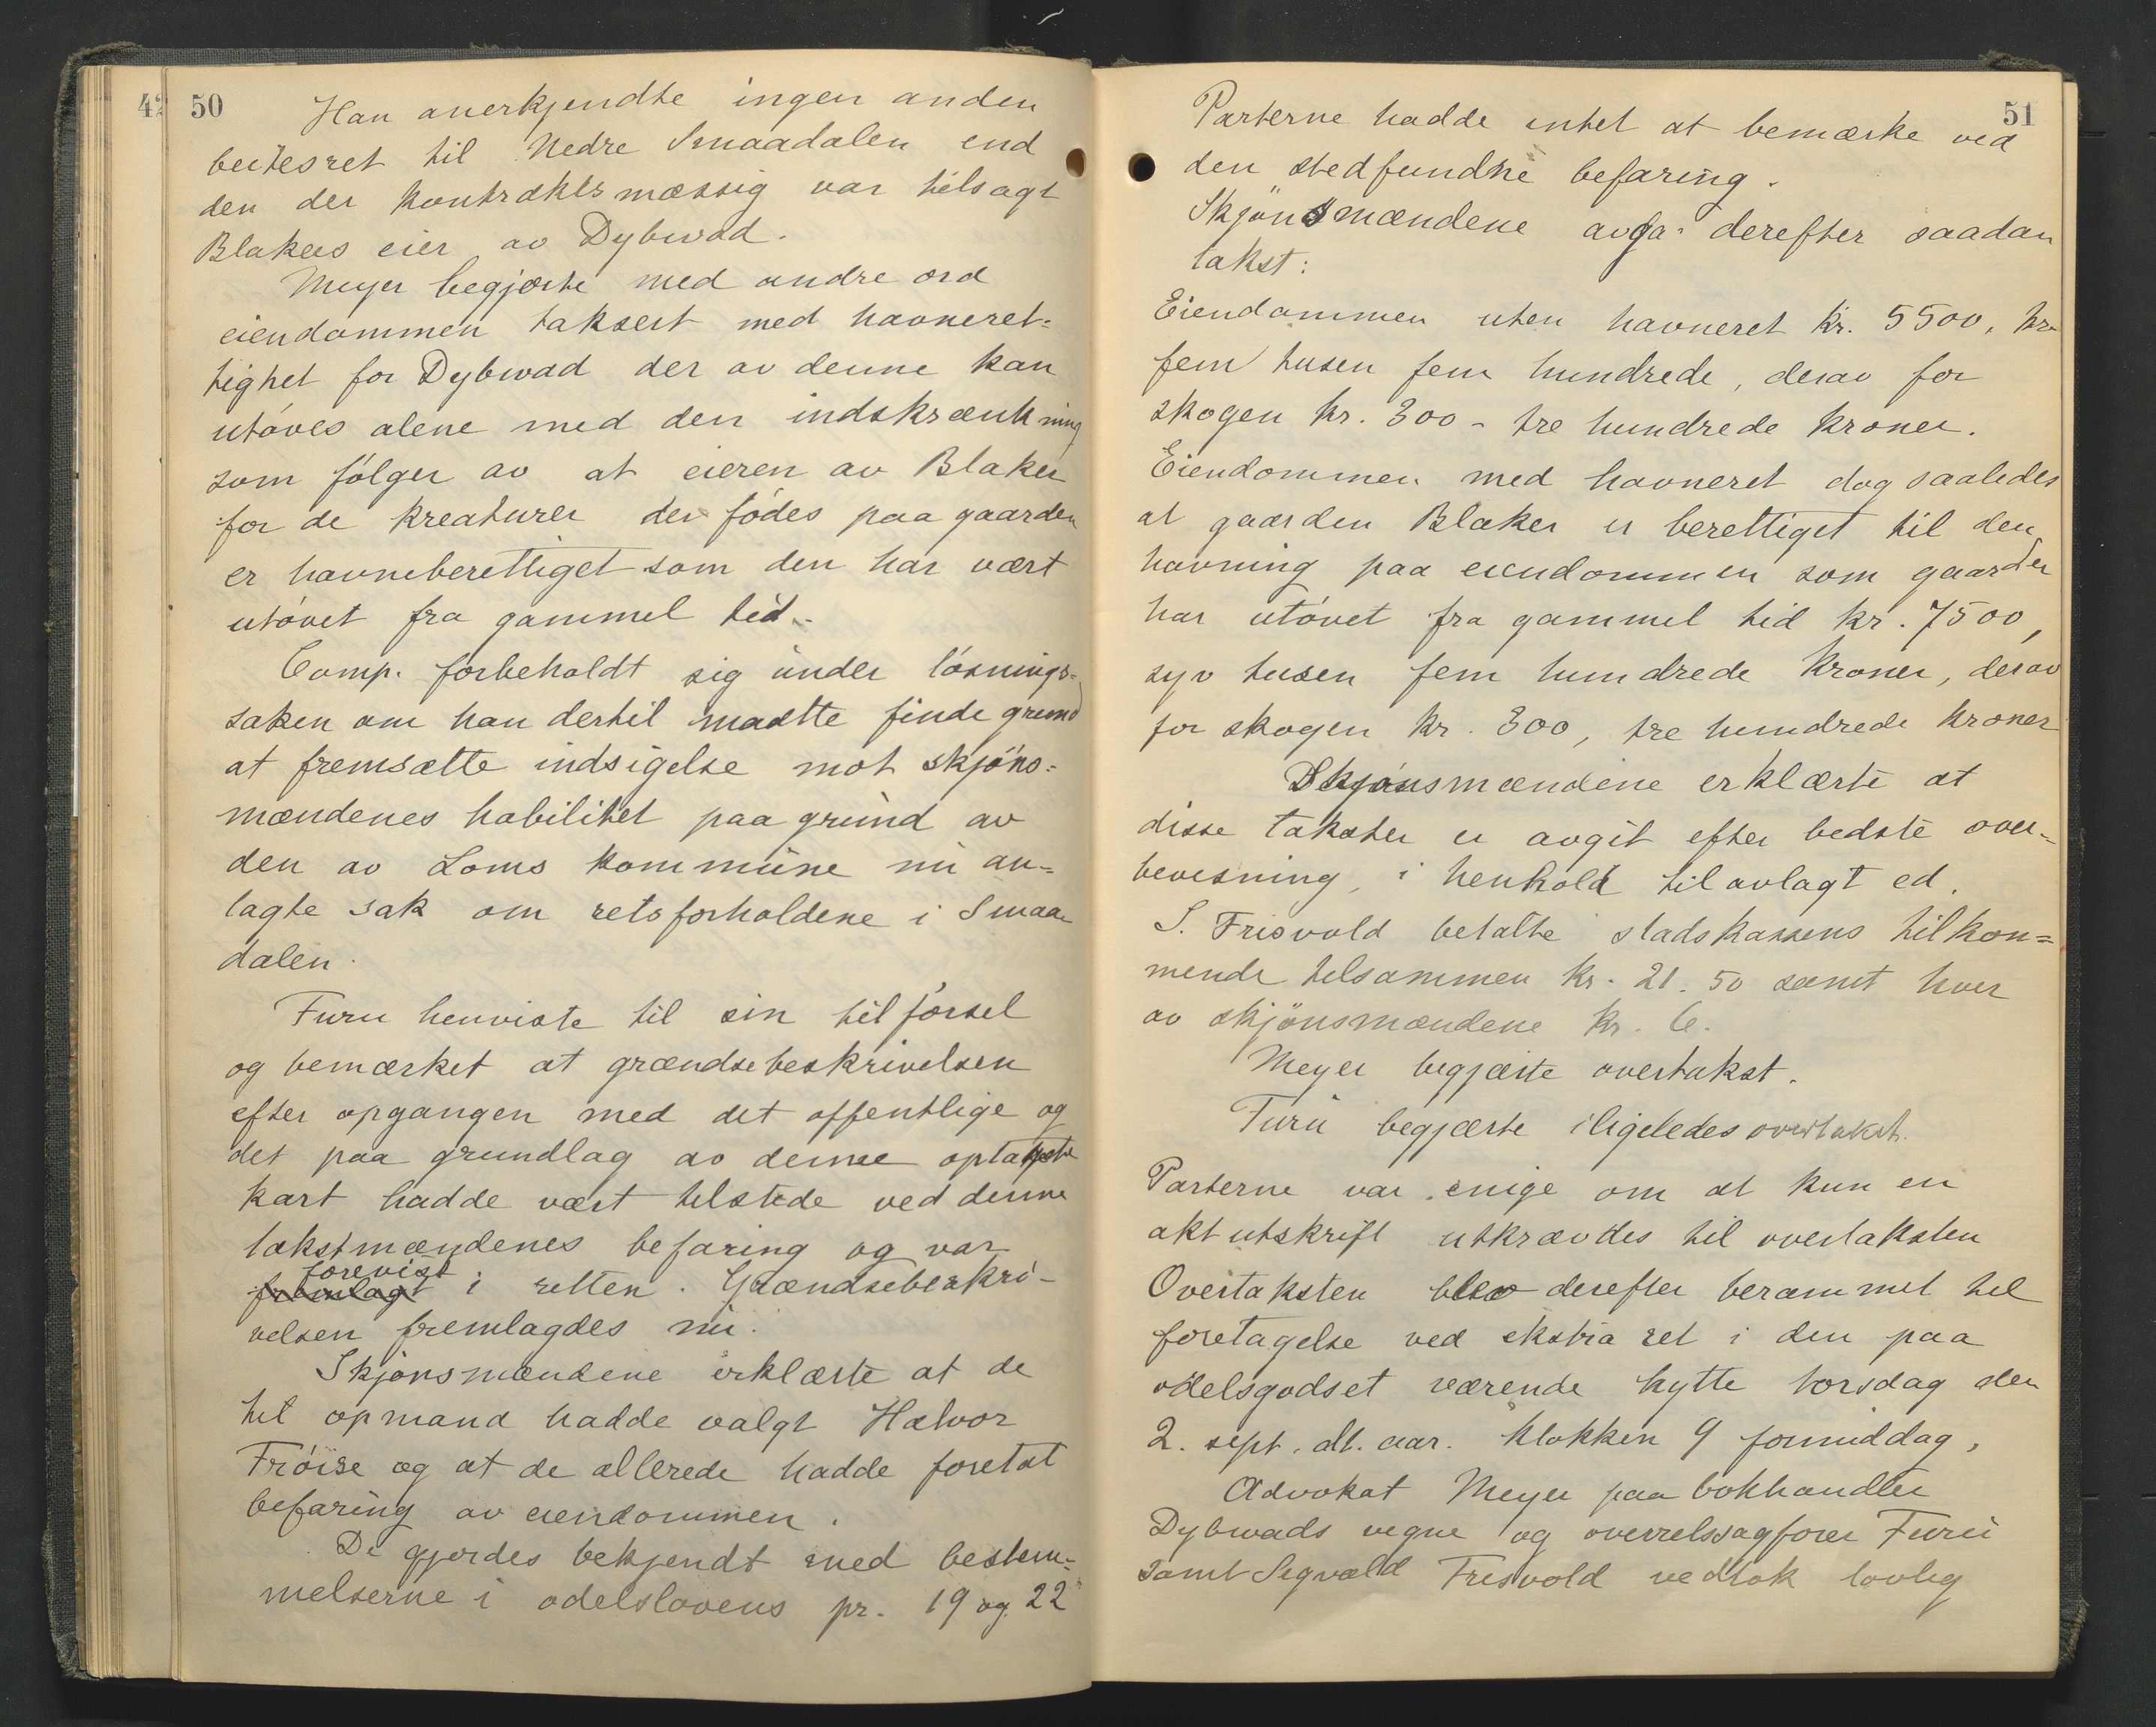 42 50
Han anerkjendte ingen anden
beitesret til Nedre Smaadalen end
den der kontraktsmæssig var tilsagt
Blakers eier av Dybwad.
Meyer begjærte med andre ord
eiendommen taksert med havneret-
tighet for Dybwad der av denne kan
utøves alene med den indskrænkning
som følger av at eieren av Blaker
for de kreaturer der fødes paa gaarden
er havneberettiget som den har vært
utøvet fra gammel tid.
Comp. forbeholdt sig under løsnings-
saken om han dertil maatte finde grund
at fremsætte indsigelse mot skjøns-
mændenes habilitet paa grund av
den av Loms kommune nu an-
lagte sak om retsforholdene i Smaa-
dalen.
Furu henviste til sin tilførsel
og bemærket at grændsebeskrivelsen
efter opgangen med det offentlige og
det paa grundlag av denne optagte
kart hadde vært tilstede ved denne
takstmændenes befaring og var
forevist
fremlagt i retten. Grændsebeskri-
velsen fremlagdes nu.
Skjønsmændene erklærte at de
til opmand hadde valgt Halvor
Frøise og at de allerede hadde foretat
befaring av eiendommen.
De gjordes bekjendt med bestem-
melserne i odelslovens pr. 19 og 22
51
Parterne hadde intet at bemærke ved
den stedfundne befaring.
Skjønsmændene avga derefter saadan
takst:
Eiendommen uten havneret kr. 5500, kr
fem tusen fem hundrede, derav for
skogen kr. 300 - tre hundrede kroner.
Eiendommen med havneret dog saaledes
at gaarden Blaker er berettiget til den
havning paa eiendommen som gaarden
har utøvet fra gammel tid kr. 7500,
syv tusen fem hundrede kroner, derav
for skogen kr. 300, tre hundrede kroner
Skjønsmændene erklærte at
disse takster er avgit efter bedste over-
bevisning, i henhold til avlagt ed.
S. Frisvold betalte stadskassens tilkom-
mende tilsammen kr. 21.50 samt hver
av skjønsmændene kr. 6.
Meyer begjærte overtakst.
Furu begjærte iligeledes overtakst.
Parterne var enige om at kun en
aktutskrift utkrævdes til overtaksten
Overtaksten blev derefter berammet til
foretagelse ved ekstra ret i den paa
odelsgodset værende hytte torsdag den
2. sept. dt. aar. klokken 9 formiddag,
Advokat Meyer paa bokhandler
Dybwads vegne og overretssagfører Furu
samt Segvald Frisvold vedtok lovlig